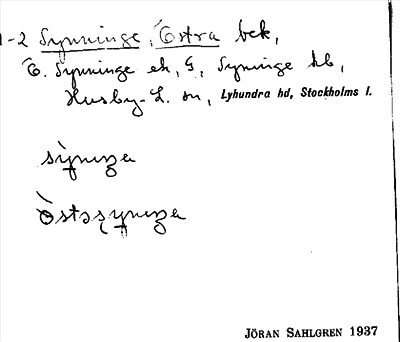 1-2 Synninge, Östra bek,
Ö. Synninge ek, G, Syninge hb,
Husby-L. sn, Lyhundra hd, Stockholms l.
sỳninga
Östasyninga
JÖRAN SAHLGREN 1937